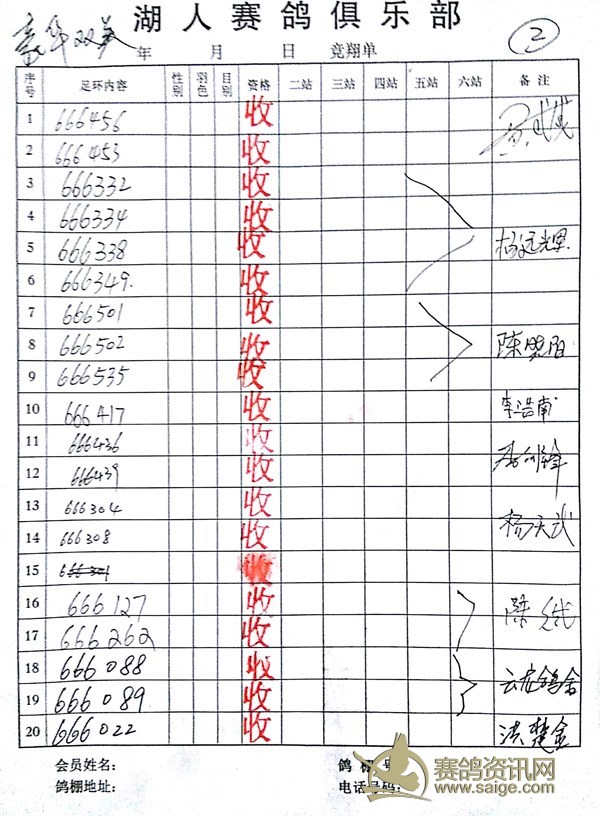 湖人赛鸽俱乐部
豪华双关 年 月 日 竞翔单 2
序号 足环内容 性别 羽色 目别 资格 二站 三站 四站 五站 六站 备注
1 666456 收
2 666453 收
3 666332 收
4 666334 收
5 666338 收
6 666349. 收
7 666501 收
8 666502 收 陈
9 666535 收
10 666417 收 李浩南
11 666436 收
12 666439 收
13 666304 收 杨天武
14 666308 收
15 收
16 666127 收 陈
17 666262 收
18 666088 收 云龙鸽舍
19 666089 收
20 666022 收 洪楚金
会员姓名: 鸽棚号
鸽棚地址: 电话号码:
赛鸽资讯网
www.saige.com